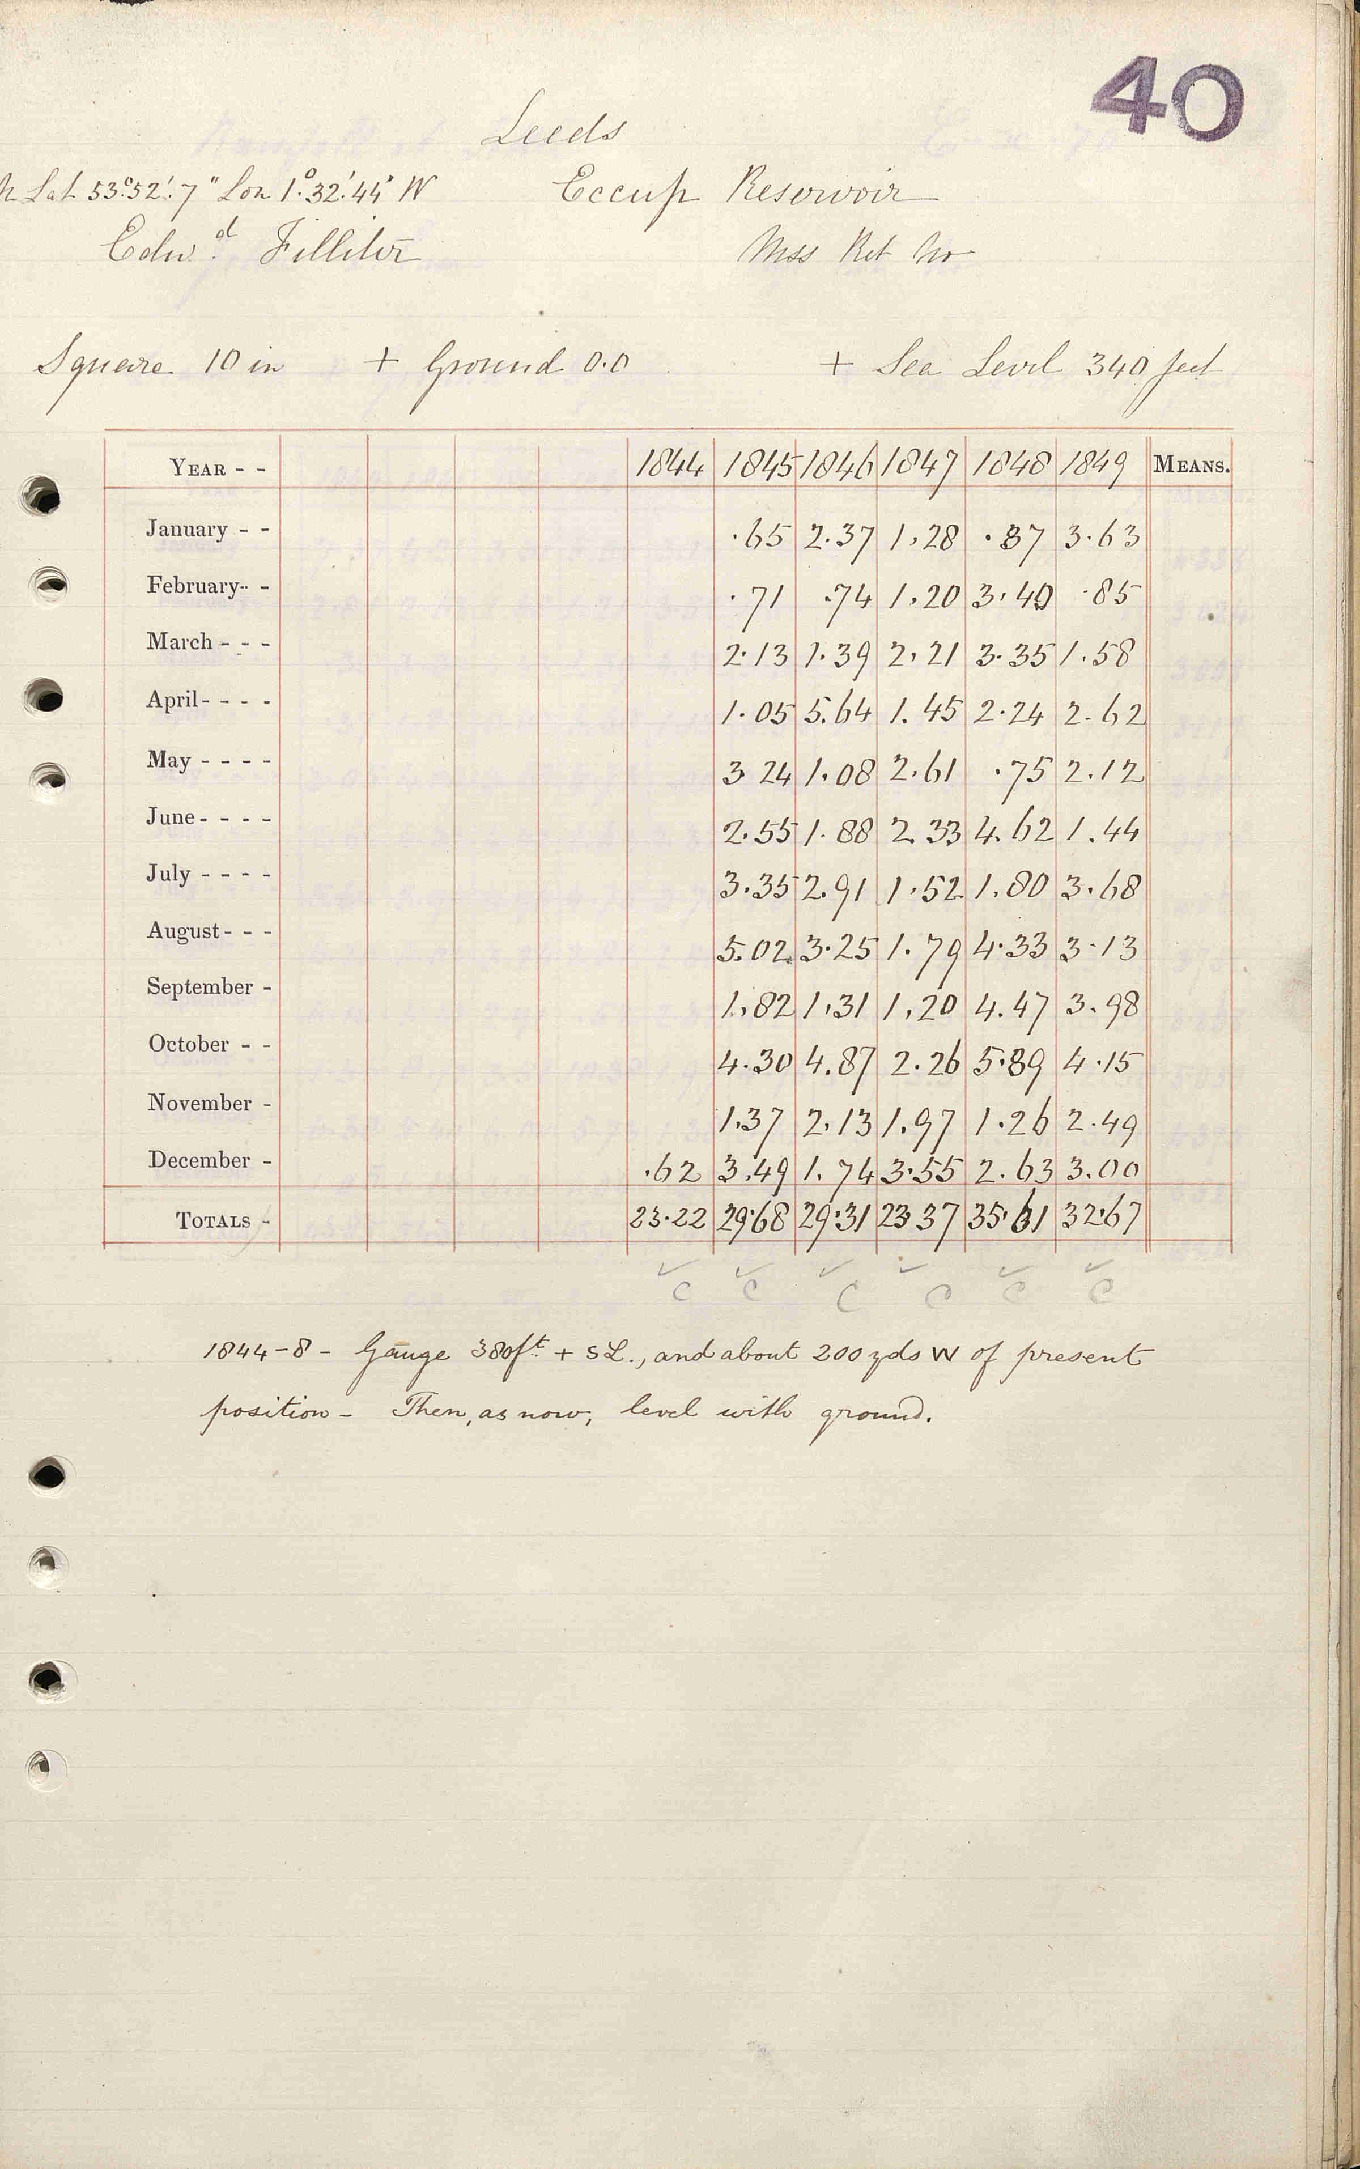 40
Leeds
Lat 53°52'.7" Lon 1°.32'.44" W Eccup Reservoir
Edw.d Filliter Mss Ret No
Square 10 in + Ground 0.0 + Sea Level 340 feet
YEAR - - 1844 1845 1846 1847 1848 1849 MEANS.
January - - .65 2.37 1.28 .87 3.63
February - - .71 .74 1.20 3.40 .85
March - - - 2.13 1.39 2.21 3.35 1.58
April - - - - 1.05 5.64 1.45 2.24 2.62
May - - - - 3 24 1.08 2.61 .75 2.12
June - - - - 2.55 1.88 2.33 4.62 1.44
July - - - - 3.35 2.91 1.52 1.80 3.68
August - - - 5.02 3.25 1.79 4.33 3.13
September - 1.82 1.31 1.20 4.47 3.98
October - - 4.30 4.87 2.26 5.89 4.15
November - 1.37 2.13 1.97 1.26 2.49
December - .62 3.49 1.74 3.55 2.63 3.00
TOTALS - 23.22 29.68 29.31 23 37 35.61 32.67
✓ ✓ ✓ ✓ ✓ ✓
C C C C C C
1844-8 - Gauge 380ft. + S L., and about 200 yds W of present
position - Then, as now, level with ground.